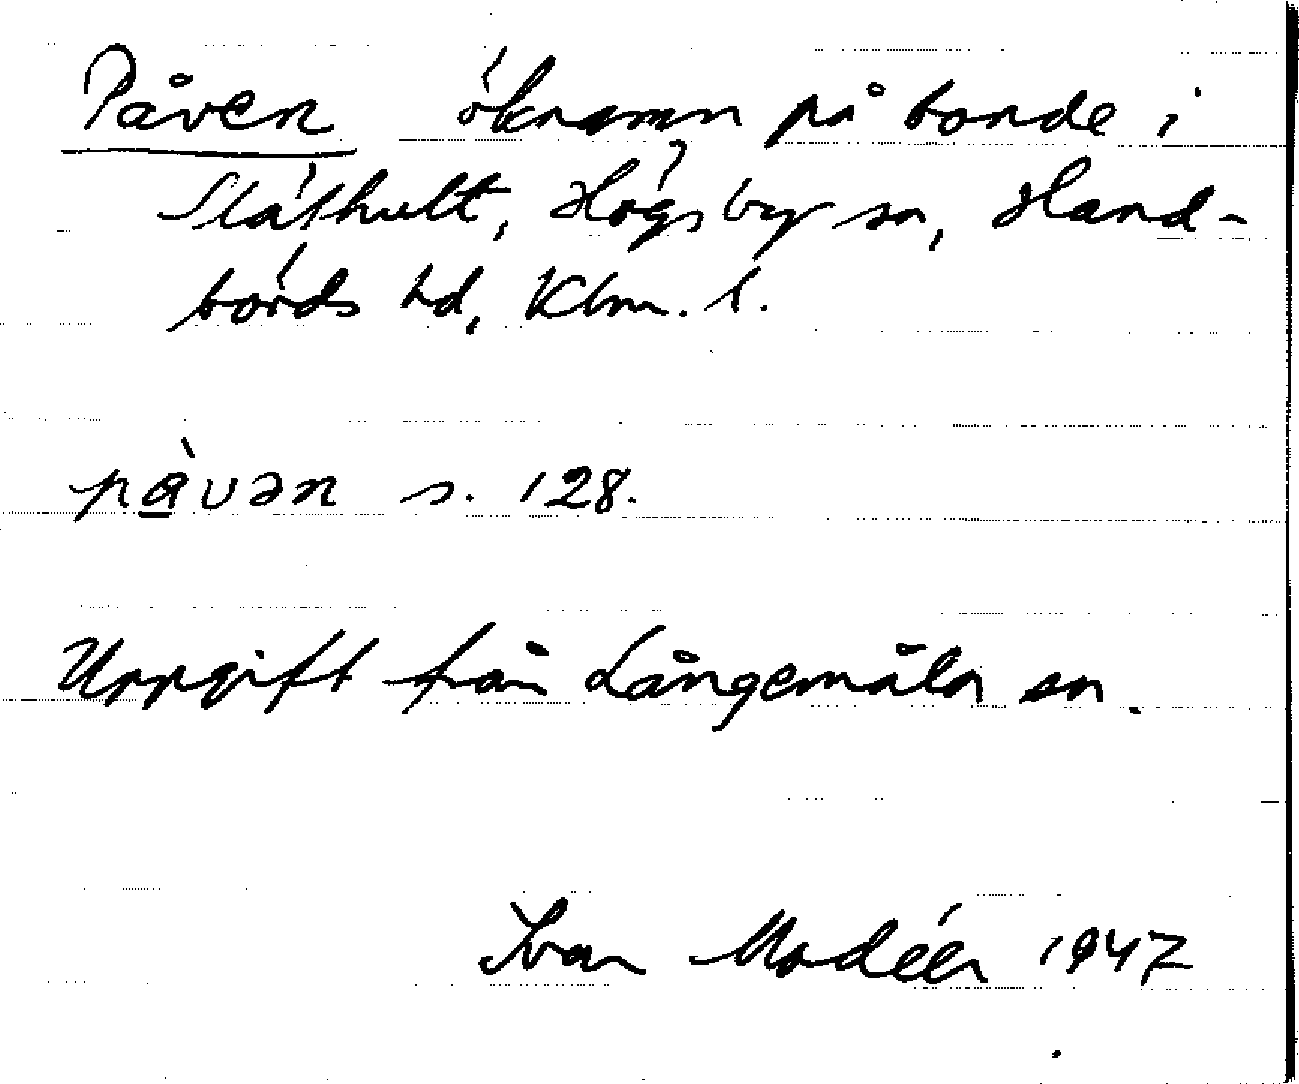 Påven öknamn på bonde i
Slåthult, Högsby sn, Hand-
börds hd, Klm. l.
pàvən s. 128.
Uppgift från Långemåla sn.
Ivar Modéer 1947